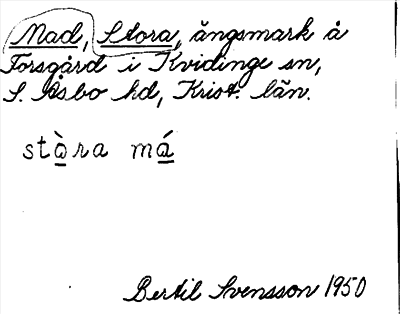 Mad, Stora, ängsmark å
Forsgård i Kvidinge sn,
S. Åsbo hd, Krist. län.
stò̲ra má̲
Bertil Svensson 1950